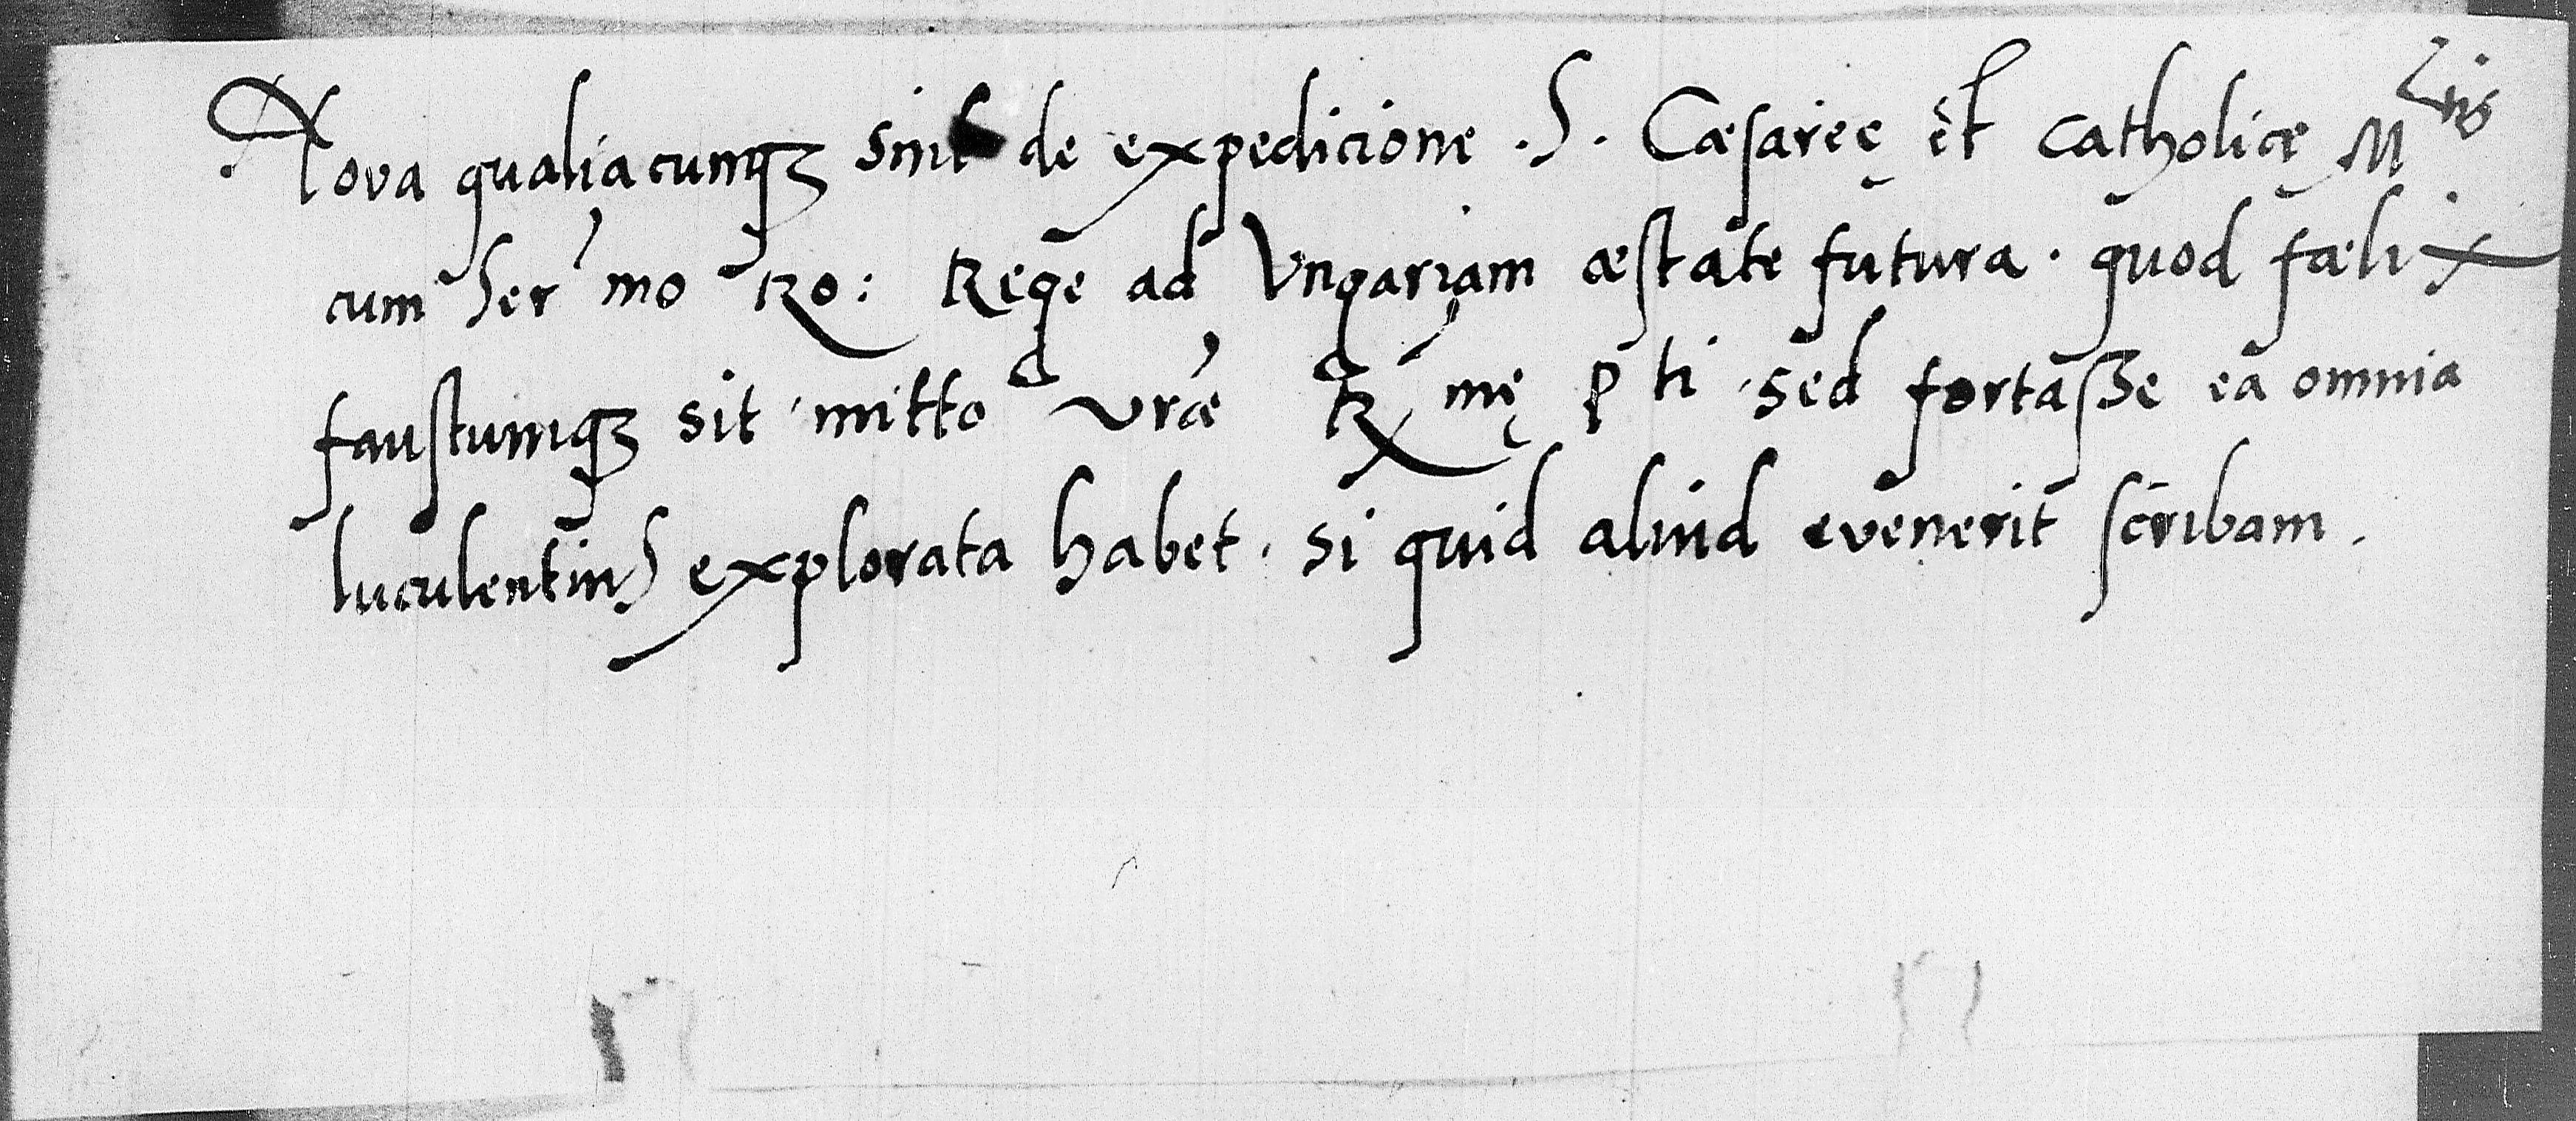 Nova qualiacunqꝫ sint de expedicione .S. Cæsareę et catholicę Mtis
cum Serꝰmo Ro: Rege ad Vngariam æstate futura. quod fælix
faustumqꝫ sit mitto vræ Rmę p ti sed fortasse ea omnia
luculentius explorata habet. si quid aliud evenerit scribam.